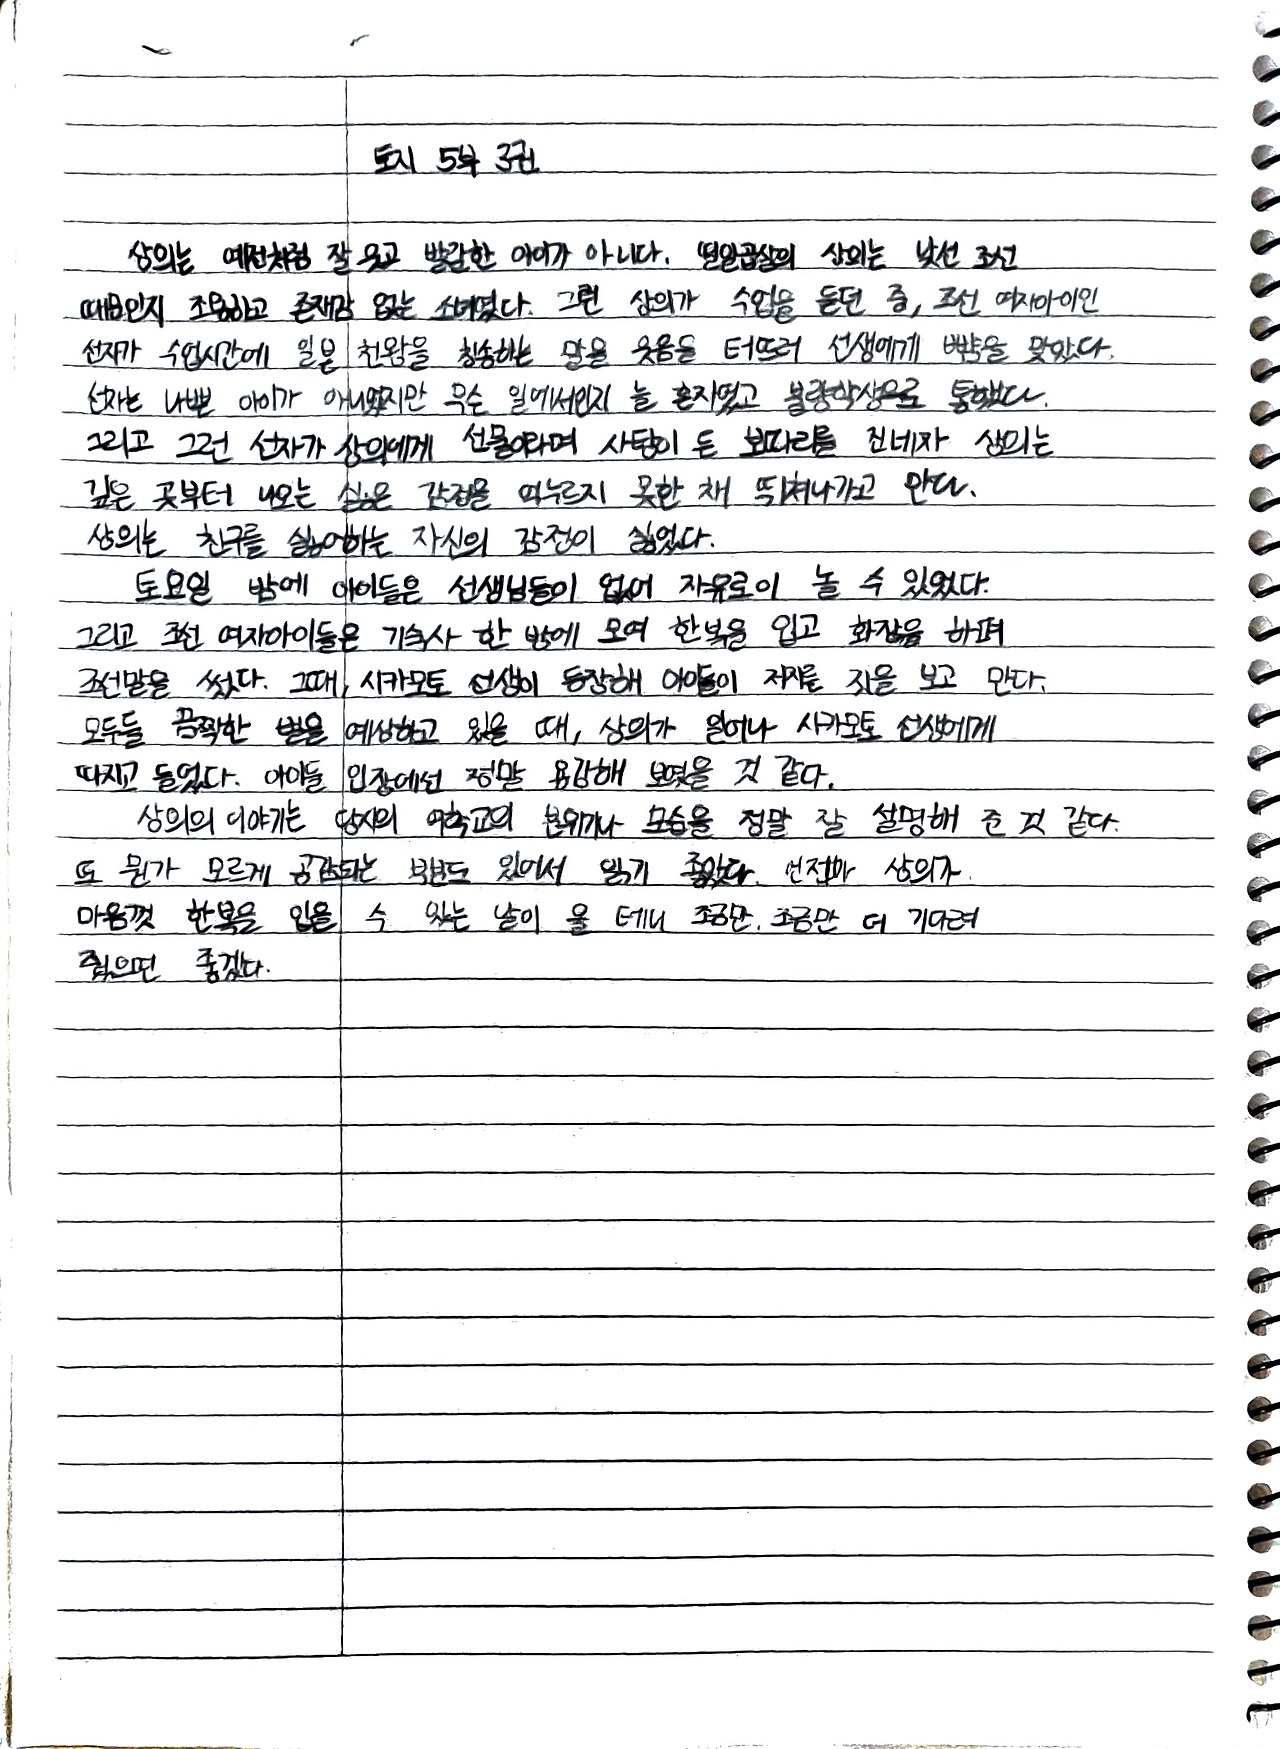 토지 5부 3권
상의는 예전처럼 잘 웃고 발랄한 아이가 아니다. 열일곱살의 상의는 낯선 조선
때문인지 조용하고 존재감 없는 소녀였다. 그런 상의가 수업을 듣던 중, 조선 여자아이인
선자가 수업시간에 일본 천왕을 칭송하는 말을 웃음을 터뜨려 선생에게 뺨을 맞았다.
선자는 나쁜 아이가 아니였지만 무슨 일에서인지 늘 혼자였고 불량학생으로 통했다.
그리고 그런 선자가 상의에게 선물이라며 사탕이 든 보따리를 건네자 상의는
깊은 곳부터 나오는 싫은 감정을 억누르지 못한 채 뛰쳐나가고 만다.
상의는 친구를 싫어하는 자신의 감정이 싫었다.
토요일 밤에 아이들은 선생님들이 없어 자유로이 놀 수 있었다.
그리고 조선 여자아이들은 기숙사 한 방에 모여 한복을 입고 화장을 하며
조선말을 썼다. 그때, 사카모토 선생이 등장해 아이들이 저지른 짓을 보고 만다.
모두들 끔찍한 벌을 예상하고 있을 때, 상의가 일어나 사카모토 선생에게
따지고 들었다. 아이들 입장에선 정말 용감해 보였을 것 같다.
상의의 이야기는 당시의 여학교의 분위기나 모습을 정말 잘 설명해 준 것 같다.
또 뭔가 모르게 공감되는 부분도 있어서 읽기 좋았다. 언젠가 상의가
마음껏 한복을 입을 수 있는 날이 올 테니 조금만, 조금만 더 기다려
줬으면 좋겠다.